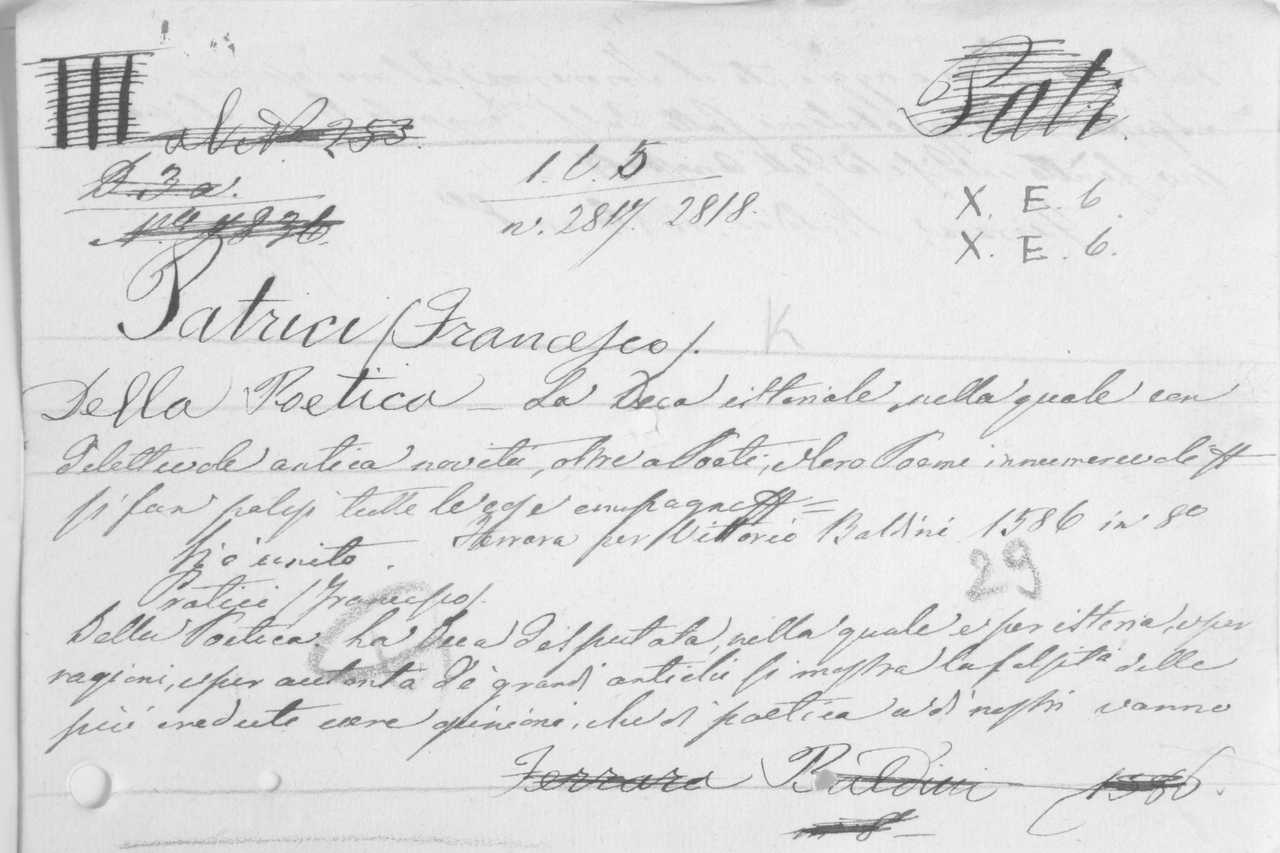 III
253.
Pati.
D. 3 a.
1. C. 5
n. 2817. 2818.
X. E. 6.
X. E. 6.
Patrici (Francesco).
Della Poetica — La Deca istoriale, nella quale con
dilettevole antica novità, oltre a Poeti, e loro Poemi innumerevoli
si fan palesi tutte le cose compagne =
Ferrara per Vittorio Baldini 1586 in 8º
Vi è unito.
29
Pratici (Francesco).
Della Poetica. La Deca disputata, nella quale e per istoria, e per
ragioni, e per autorità dè grandi antichi si mostra la falsità delle
più credute vere opinioni, che di poetica a dì nostri vanno
Ferrara Baldini 1586.
in 8º